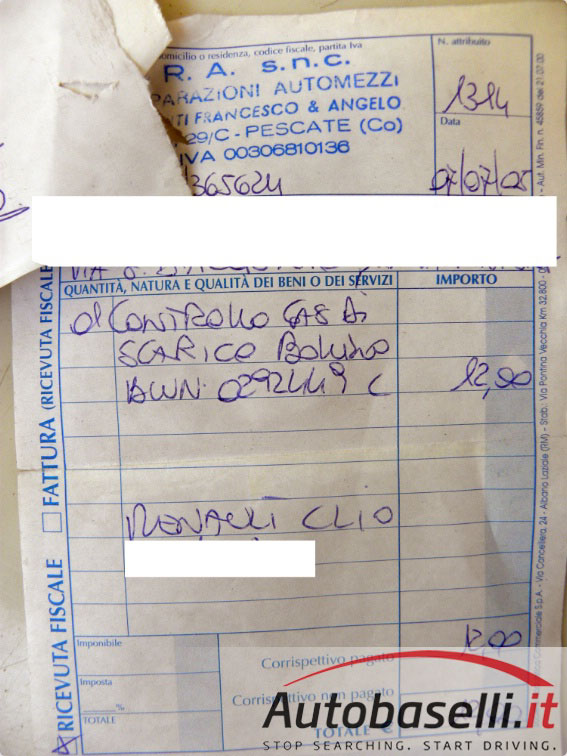 domicilio o residenza, codice fiscale, partita Iva
R. A. s.n.c.
PARAZIONI AUTOMEZZI
TI FRANCESCO & ANGELO
29/C - PESCATE (Co)
IVA 00306810136
365624
N. attribuito
1314
Data
07/07/05
QUANTITÀ, NATURA E QUALITÀ DEI BENI O DEI SERVIZI
IMPORTO
01 CONTROLLO GAS DI
SCARICO BOLLINO
12,00
RENAULT CLIO
Imponibile
Imposta
%
TOTALE
Corrispettivo pagato
12,00
Corrispettivo non pagato
TOTALE €
FATTURA (RICEVUTA FISCALE
RICEVUTA FISCALE
S.p.A. - Via Cancelliera, 24 - Albano Laziale (RM) - Stab. Via Pontina Vecchia Km 32,800 -
Aut. Min. Fin. n. 45859 del 21.07.00
Autobaselli.it
STOP SEARCHING. START DRIVING.